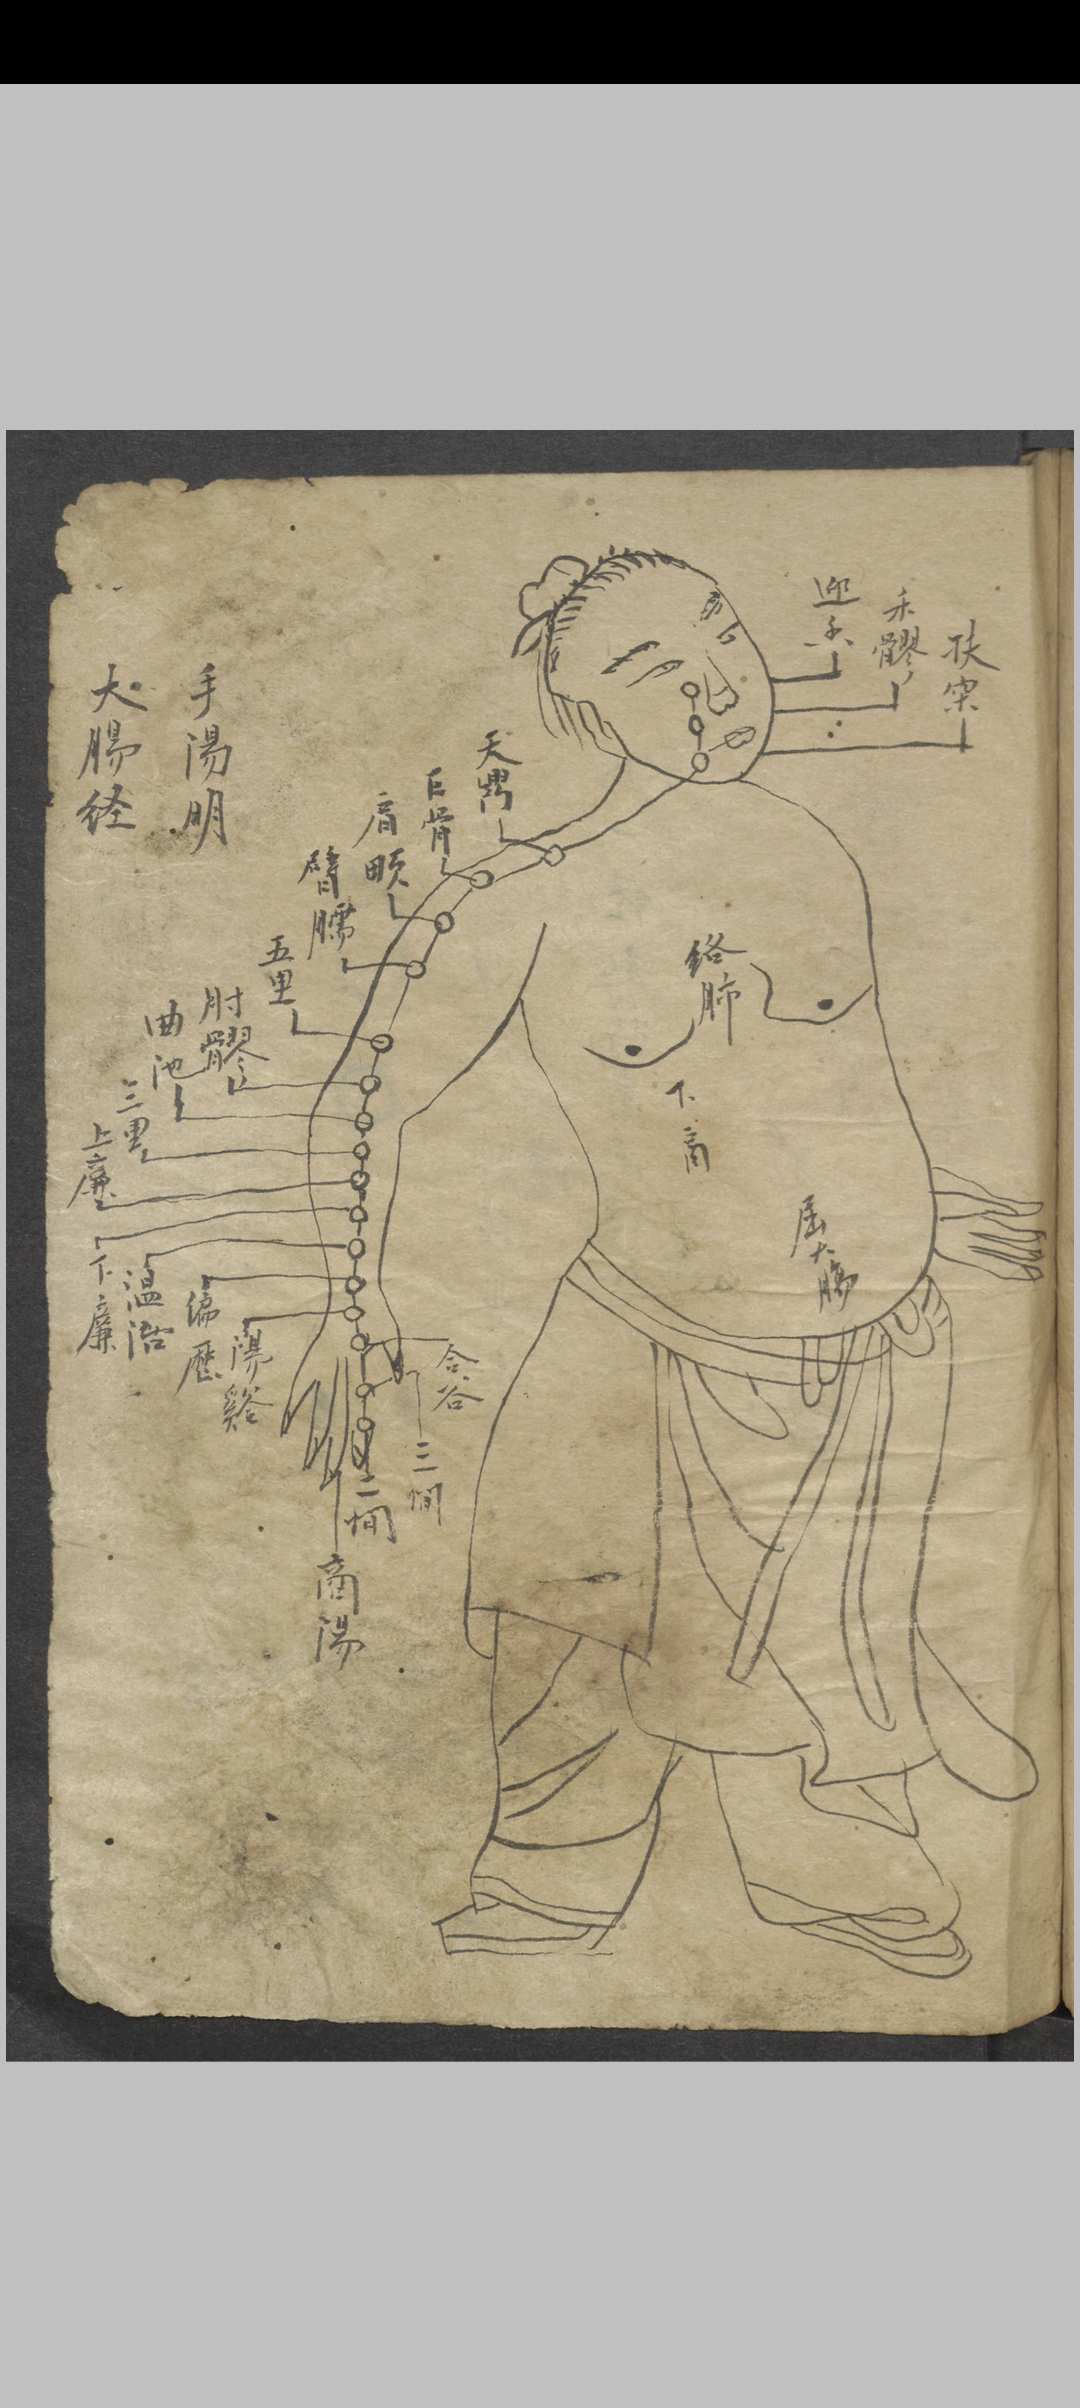 手陽明
大腸経
迎香
禾髎
扶突
天鼎
巨骨
肩顒
臂臑
五里
肘髎
曲池
三里
上廉
下廉
温
偏歴
陽谿
合谷
三間
二間
商陽
絡肺
下鬲
属大腸